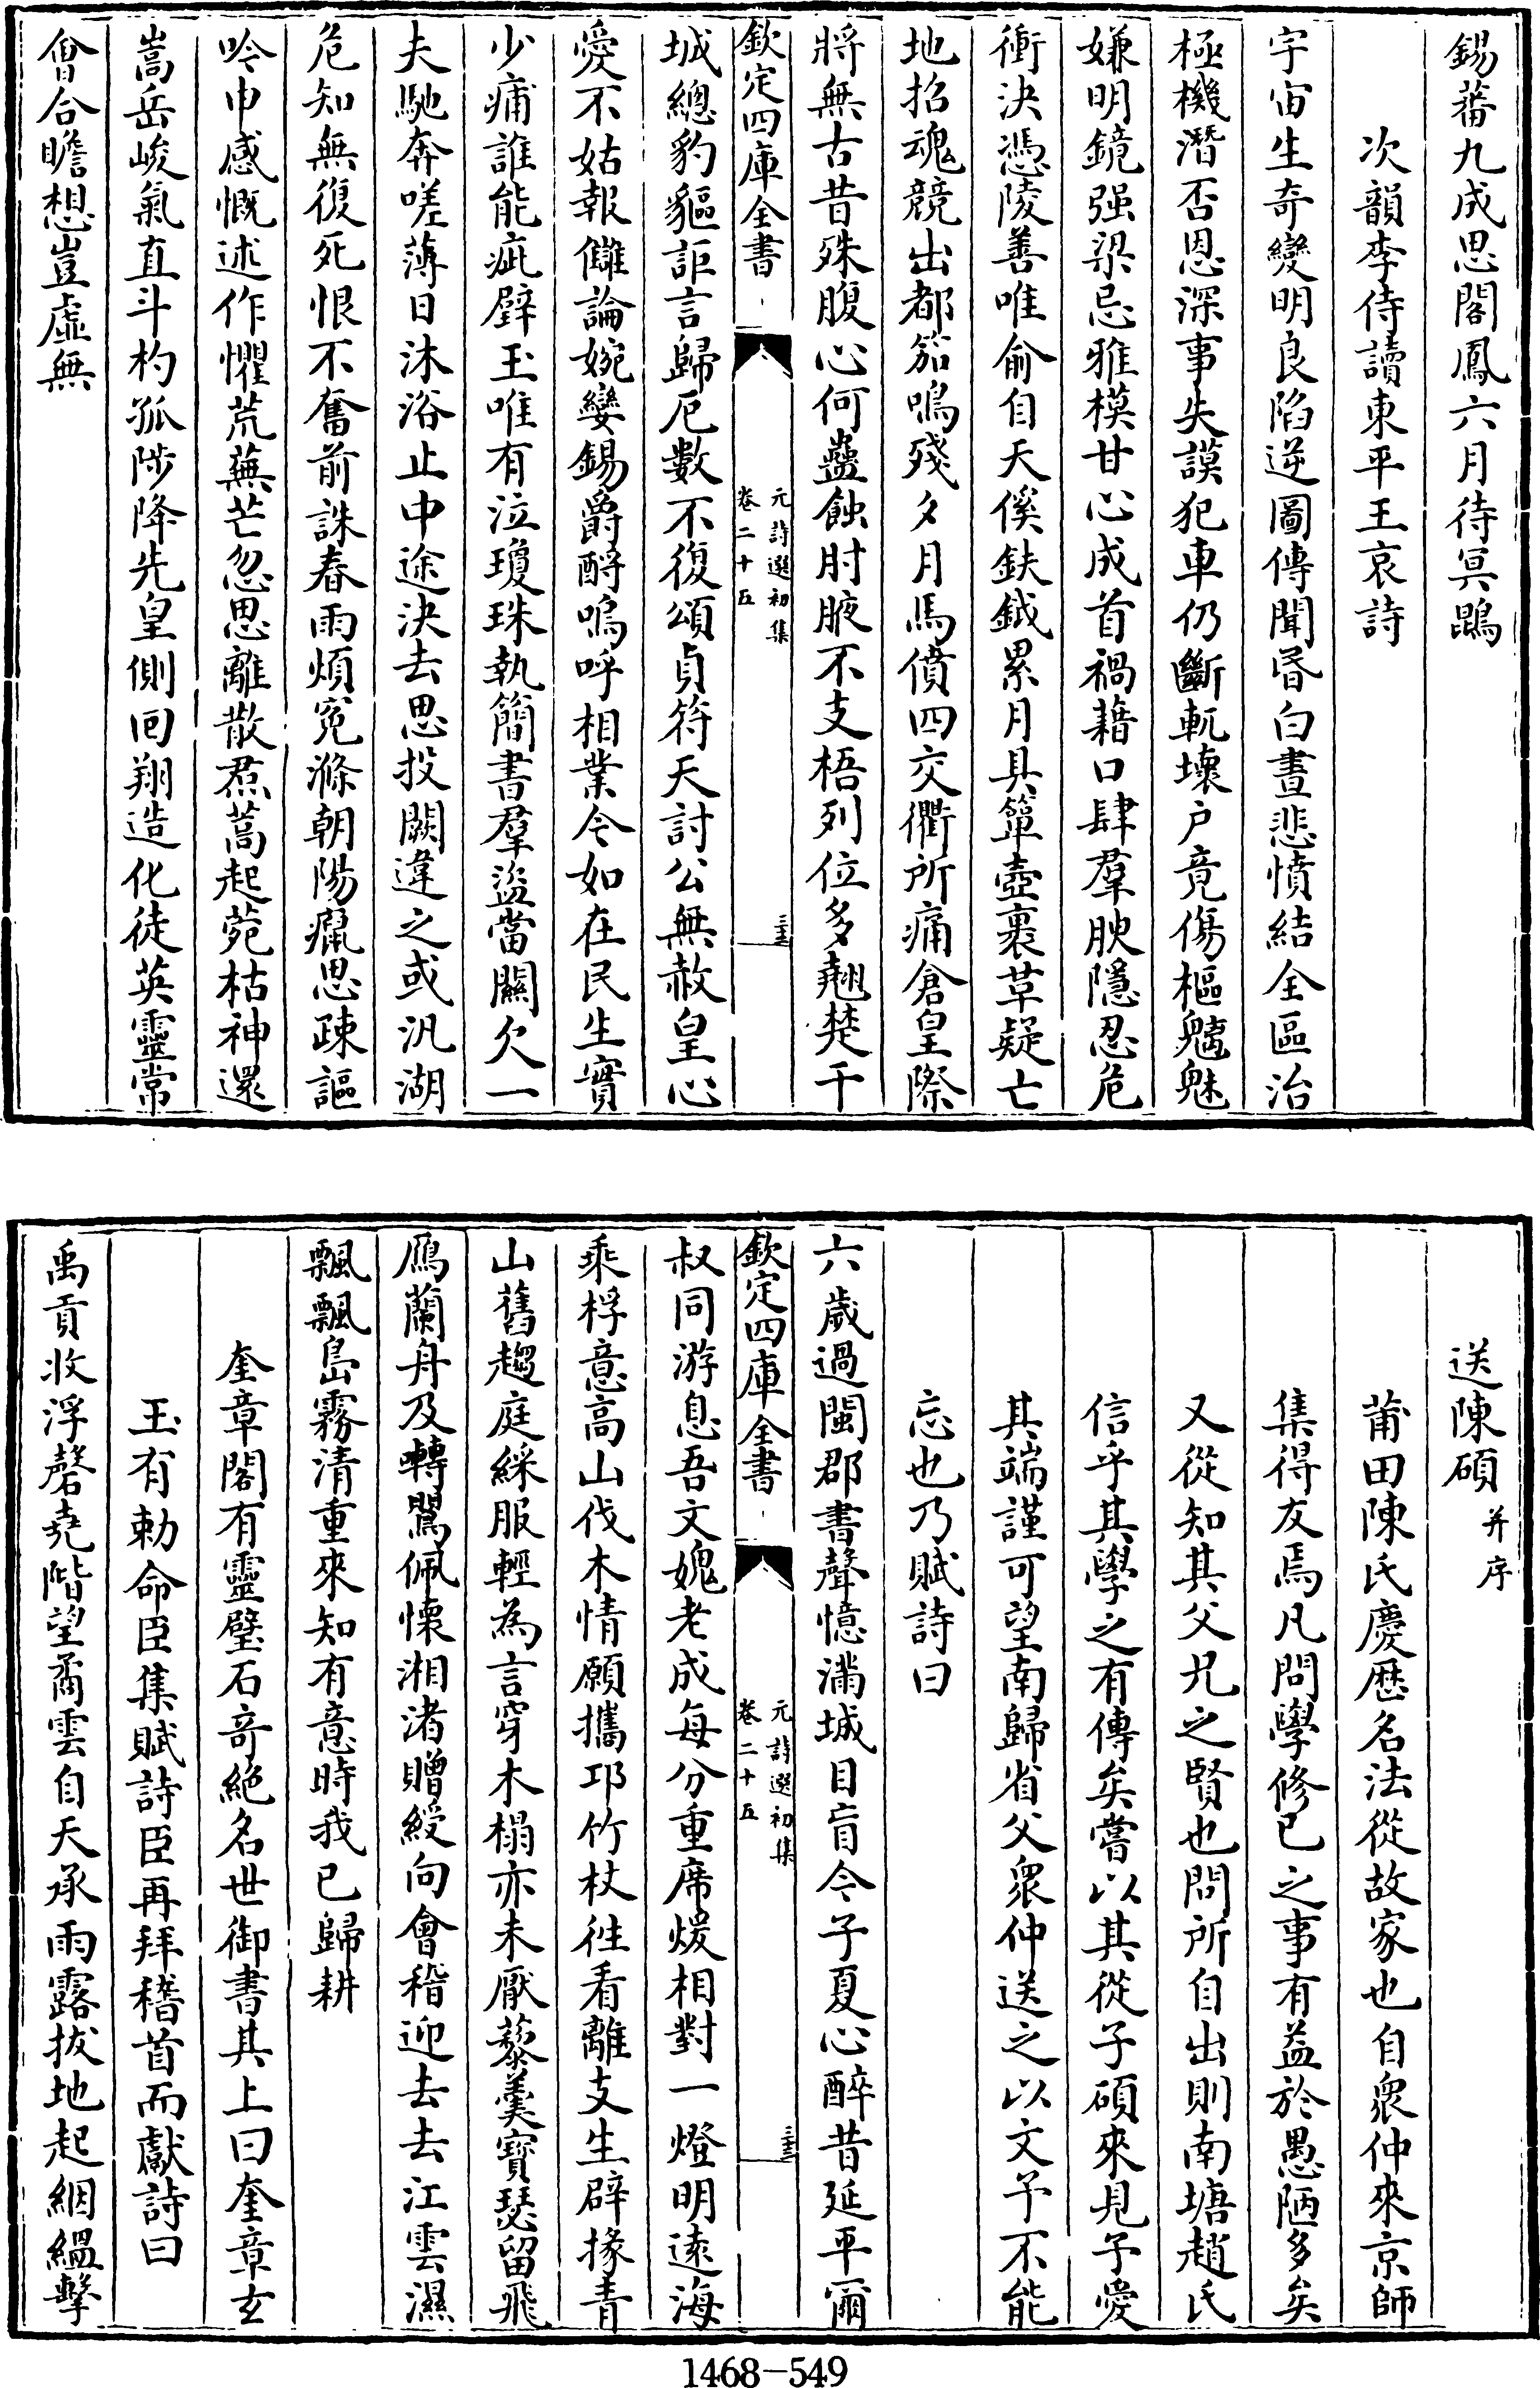 錫蕃九成思閣鳳六月待冥鵾
次韻李侍讀東平王哀詩
宇宙生奇變明良陷逆圖傳聞昏白晝悲憤結全區治
極機潛否恩深事失謨犯車仍斷軏壞户竟傷樞魑魅
嫌明鏡强梁忌雅模甘心成首禍藉口肆羣腴隱忍危
衝決憑陵善唯俞自天俟鈇鉞累月具簞壺裹革疑亡
地招魂競出都笳鳴殘夕月馬僨四交衢所痛倉皇際
將無古昔殊腹心何蠱蝕肘腋不支梧列位多翹楚干
欽定四庫全書
元詩選初集
卷二十五
城總豹貙詎言歸厄數不復頌貞符天討公無赦皇心
愛不姑報讎論婉孌錫爵酹嗚呼相業今如在民生實
少痡誰能疵璧玉唯有泣瓊珠執簡書羣盜當關欠一
夫馳奔嗟薄日沐浴止中途決去思投闕違之或汎湖
危知無復死恨不奮前誅春雨煩寃滌朝陽癙思疎謳
吟申感慨述作懼荒蕪芒忽思離散焄蒿起菀枯神還
嵩岳峻氣直斗杓孤陟降先皇側回翔造化徒英靈常
㑹合瞻想豈虛無
送陳碩并序
莆田陳氏慶厯名法從故家也自衆仲來京師
集得友焉凡問學修已之事有益於愚陋多矣
又從知其父兄之賢也問所自出則南塘趙氏
信乎其學之有傳矣嘗以其從子碩來見予愛
其端謹可望南歸省父衆仲送之以文予不能
忘也乃賦詩曰
六歲過閩郡書聲憶滿城目盲今子夏心醉昔延平爾
欽定四庫全書
元詩選初集
卷二十五
叔同游息吾文媿老成每分重席煖相對一燈明遠海
乘桴意高山伐木情願攜邛竹杖徃看離支生辟掾青
山舊趨庭綵服輕為言穿木榻亦未厭藜羮寶瑟留飛
鴈蘭舟及轉鶯佩懷湘渚贈綬向會稽迎去去江雲濕
飄飄島霧清重來知有意時我已歸耕
奎章閣有靈璧石奇絶名世御書其上曰奎章玄
玉有勅命臣集賦詩臣再拜稽首而獻詩曰
禹貢收浮磬堯階望矞雲自天承雨露拔地起絪緼擊
1468-549